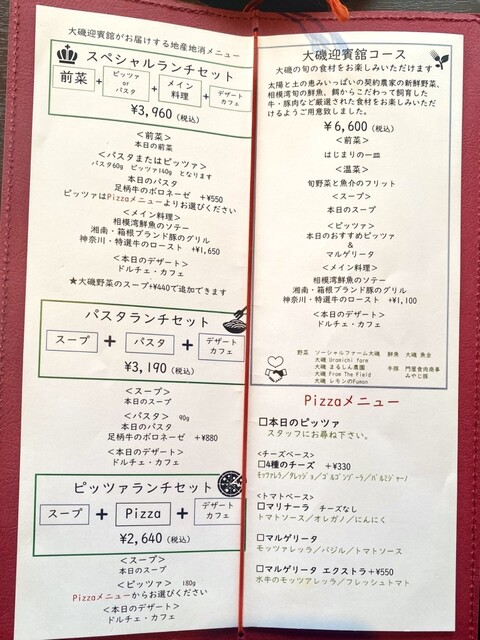 大磯迎賓館がお届けする地産地消メニュー
スペシャルランチセット
前菜 + ピッツァ or パスタ + メイン料理 + デザート カフェ
¥3,960(税込)
<前菜>
本日の前菜
<パスタまたはピッツァ>
パスタ60g ピッツァ140g となります
本日のパスタ
足柄牛のボロネーゼ +¥550
ピッツァはPizzaメニューよりお選びください
<メイン料理>
相模湾鮮魚のソテー
湘南・箱根ブランド豚のグリル
神奈川・特選牛のロースト +¥1,650
<本日のデザート>
ドルチェ・カフェ
★大磯野菜のスープ+¥440で追加できます
パスタランチセット
スープ + パスタ + デザート カフェ
¥3,190(税込)
<スープ>
本日のスープ
<パスタ> 90g
本日のパスタ
足柄牛のボロネーゼ +¥880
<本日のデザート>
ドルチェ・カフェ
ピッツァランチセット
スープ + Pizza + デザート カフェ
¥2,640(税込)
<スープ>
本日のスープ
<ピッツァ> 180g
Pizzaメニューからお選びください
<本日のデザート>
ドルチェ・カフェ
大磯迎賓館コース
大磯の旬の食材をお楽しみいただけます
太陽と土の恵みいっぱいの契約農家の新鮮野菜、
相模湾旬の鮮魚、餌からこだわって飼育した
牛・豚肉など厳選された食材がお楽しみいただ
けるようご用意致しました。
¥6,600(税込)
<前菜>
はじまりの一皿
<温菜>
旬野菜と魚介のフリット
<スープ>
本日のスープ
<ピッツァ>
本日のおすすめピッツァ
&
マルゲリータ
<メイン料理>
相模湾鮮魚のソテー
湘南・箱根ブランド豚のグリル
神奈川・特選牛のロースト +¥1,100
<本日のデザート>
ドルチェ・カフェ
野菜 ソーシャルファーム大磯 鮮魚 大磯 魚金
大磯 Uramichi farm
大磯 まるしん農園 牛豚 門屋食肉商事
大磯 From The Field みやじ豚
大磯 レモンのFumon
Pizzaメニュー
□本日のピッツァ
スタッフにお尋ね下さい。
<チーズベース>
□4種のチーズ +¥330
モッツァレラ/タレッジョ/ゴルゴンゾーラ/パルミジャーノ
<トマトベース>
□マリナーラ チーズなし
トマトソース/オレガノ/にんにく
□マルゲリータ
モッツァレッラ/バジル/トマトソース
□マルゲリータ エクストラ+¥550
水牛のモッツアレッラ/フレッシュトマト